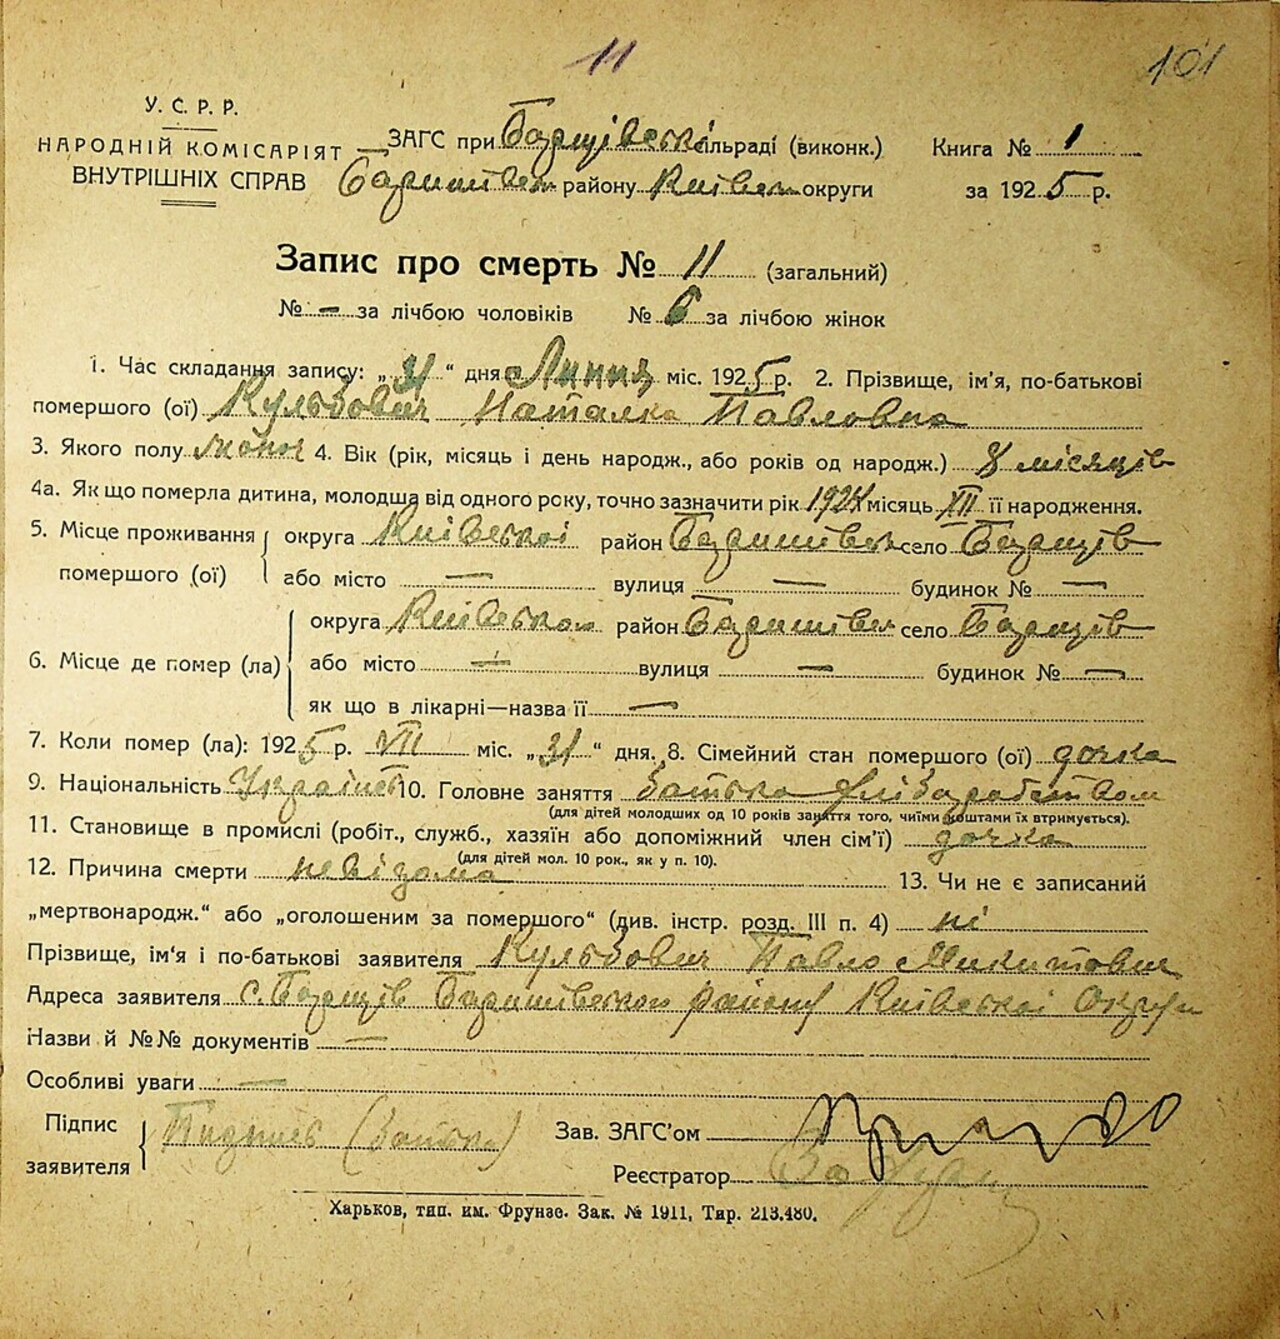 11
101
У. С. Р. Р.
НАРОДНІЙ КОМІСАРІЯТ
ВНУТРІШНІХ СПРАВ
ЗАГС при сільраді (виконк.)
районy округи
Книга № 1
за 1925 р.
Запис про смерть № 11 (загальний)
№ – за лічбою чоловіків № 6 за лічбою жінок
1. Час складання запису: „31“ дня Липня міс. 1925 р. 2. Прізвище, ім'я, по-батькові
помершого (ої) Кульбович Наталка Павловна
3. Якого полу жіноч 4. Вік (рік, місяць і день народж., або років од народж.) 8 місяців
4а. Як що померла дитина, молодша від одного року, точно зазначити рік 1924 місяць XII її народження.
5. Місце проживання помершого (ої) округа Київської район Баришівськ село
або місто — вулиця — будинок № —
6. Місце де помер (ла) округа Київськой район Баришівськ село
або місто — вулиця — будинок № —
як що в лікарні—назва її —
7. Коли помер (ла): 1925 р. VII міс. „31“ дня. 8. Сімейний стан помершого (ої) дочка
9. Національність 10. Головне заняття батька хліборобством
(для дітей молодших од 10 років заняття того, чиїми коштами їх втримується).
11. Становище в промислі (робіт., служб., хазяїн або допоміжний член сім'ї) дочка
(для дітей мол. 10 рок., як у п. 10).
12. Причина смерти невідома 13. Чи не є записаний
„мертвонародж.“ або „оголошеним за помершого“ (див. інстр. розд. III п. 4) ні
Прізвище, ім'я і по-батькові заявителя Кульбович Павло Микитович
Адреса заявителя с. Баришівськой району Київської Округи
Назви й №№ документів —
Особливі уваги —
Підпис заявителя (батька)
Зав. ЗАГС'ом
Реєстратор
Харьков, тип. им. Фрунзе. Зак. № 1911, Тир. 213.480.